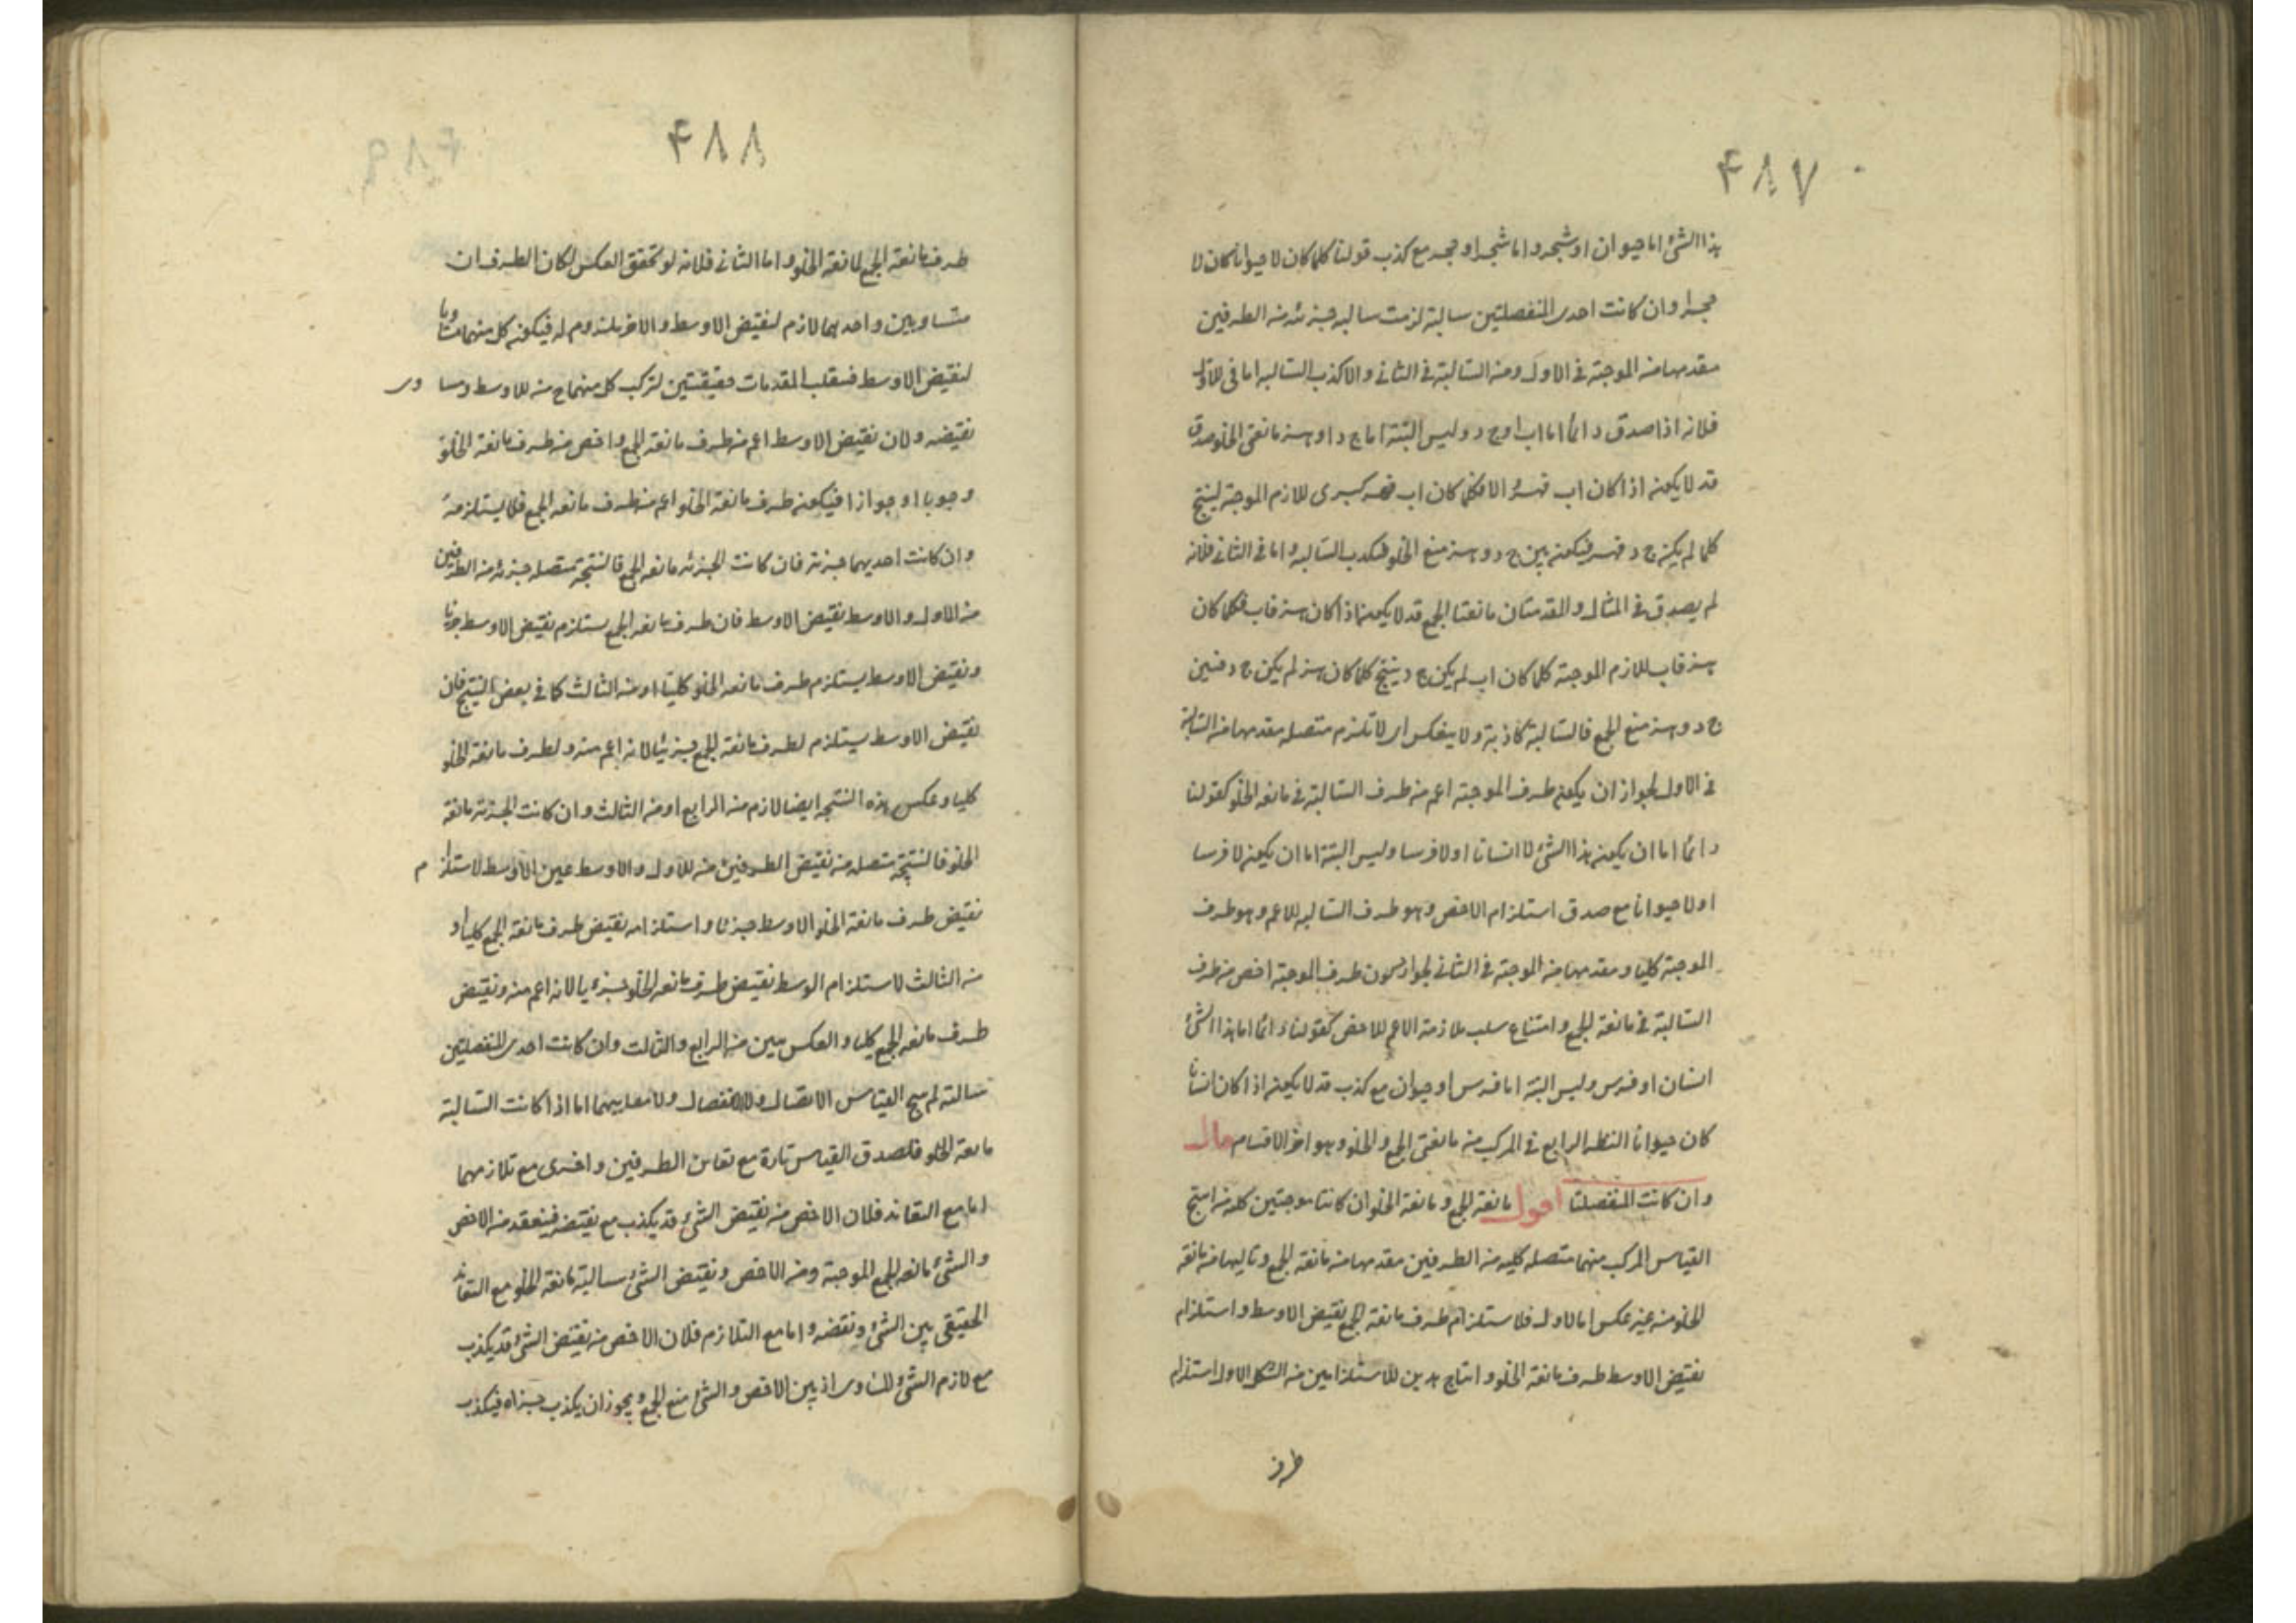 ۴۸۷
هذا الشئ اما حيوان او شجر واما شجر او حجر مع كذب قولنا كلما كان لا حيوانا كان لا
حجرا وان كانت احدى المنفصلتين سالبة لزمت سالبه جزئه من الطرفين
مقدمها من الموجبة فى الاول ومن السالبة فى الثانى والا كذب السالبه اما فى الاول
فلانه اذا صدق دائما اما اب او ج د وليس البتة اما ج د او ه ز مانعتى الخلو صدق
قد لا يكون اذا كان اب فه ز والا فكلما كان اب فه ز كبرى للازم الموجبة لينتج
كلما لم يكن ج د فه ز فيكون بين ج د و ه ز منع الخلو فيكذب السالبه واما فى الثانى فلانه
لم يصدق فى المثال والمقدمتان مانعتا الجمع قد لا يكون اذا كان ه ز فاب فكلما كان
ه ز فاب للازم الموجبة كلما كان اب لم يكن ج د ينتج كلما كان ه ز لم يكن ج د فبين
ج د و ه ز منع الجمع فالسالبة كاذبة ولا ينعكس اى لا تلزم متصله مقدمها من السالبة
فى الاول لجواز ان يكون طرف الموجبة اعم من طرف السالبة فى مانعه الخلو كقولنا
دائما اما ان يكون هذا الشئ لا انسانا او لا فرسا وليس البتة اما ان يكون لا فرسا
او لا حيوانا مع صدق استلزام الاخص وهو طرف السالبه للاعم وهو طرف
الموجبة كليا ومقدمها من الموجبة فى الثانى لجواز كون طرف الموجبة اخص من طرف
السالبة فى مانعة الجمع وامتناع سلب ملازمة الاعم للاخص كقولنا دائما اما هذا الشئ
انسان او فرس وليس البتة اما فرس او حيوان مع كذب قد لا يكون اذا كان انسانا
كان حيوانا النظر الرابع فى المركب من مانعتى الجمع والخلو وهو اخر الاقسام قال
وان كانت المنفصلتا اقول مانعة الجمع ومانعة الخلو ان كانتا موجبتين كليتين انتج
القياس المركب منهما متصله كليه من الطرفين مقدمها من مانعة الجمع وتاليها من مانعة
الخلو من غير عكس اما الاول فلاستلزام طرف مانعة الجمع نقيض الاوسط واستلزام
نقيض الاوسط طرف مانعة الخلو وانتاج هذين الاستلزامين من الشكل الاول استلزام
طرف
۴۸۸
طرف مانعة الجمع لمانعة الخلو واما الثانى فلانه لو تحقق العكس لكان الطرفان
متساويين واحدهما لازم لنقيض الاوسط والاخر ملزوم له فيكون كل منهما مساويا
لنقيض الاوسط فينقلب المقدمات حقيقيتين لتركب كل منهما ح من الاوسط ومساوى
نقيضه ولان نقيض الاوسط اعم من طرف مانعة الجمع واخص من طرف مانعة الخلو
وجوبا او جوازا فيكون طرف مانعة الخلو اعم من طرف مانعه الجمع فلا يستلزمه
وان كانت احديهما جزئية فان كانت الجزئه مانعه الجمع فالنتيجة متصله جزئه من الطرفين
من الاول والاوسط نقيض الاوسط فان طرف مانعه الجمع يستلزم نقيض الاوسط جزئيا
ونقيض الاوسط يستلزم طرف مانعه الخلو كليا او من الثالث كما فى بعض النسخ فان
نقيض الاوسط يستلزم لطرف مانعة الجمع جزئيا لانه اعم منه ولطرف مانعة الخلو
كليا وعكس هذه النتيجه ايضا لازم من الرابع او من الثالث وان كانت الجزئية مانعة
الخلو فالنتيجة متصله من نقيض الطرفين من الاول والاوسط عين الاوسط لاستلزام
نقيض طرف مانعة الخلو الاوسط جزئيا واستلزامه نقيض طرف مانعة الجمع كليا او
من الثالث لاستلزام الوسط نقيض طرف مانعه الخلو جزئيا لانه اعم منه ونقيض
طرف مانعه الجمع كليا والعكس مبين من الرابع والثالث وان كانت احدى المنفصلتين
سالبة لم ينتج القياس الاتصال والانفصال ولا معاييهما اما اذا كانت السالبة
مانعة الخلو فلصدق القياس تارة مع تعاند الطرفين واخرى مع تلازمهما
اما مع التعاند فلان الاخص من نقيض الشئ قد يكذب مع نقيضه فينعقد من الاخص
والشئ مانعه الجمع الموجبة ومن الاخص ونقيض الشئ سالبة مانعة الخلو مع التعاند
الحقيقى بين الشئ ونقيضه واما مع التلازم فلان الاخص من نقيض الشئ قد يكذب
مع لازم الشئ المساوى اذ بين الاخص والشئ منع الجمع ويجوز ان يكذب جزءاه فيكذب